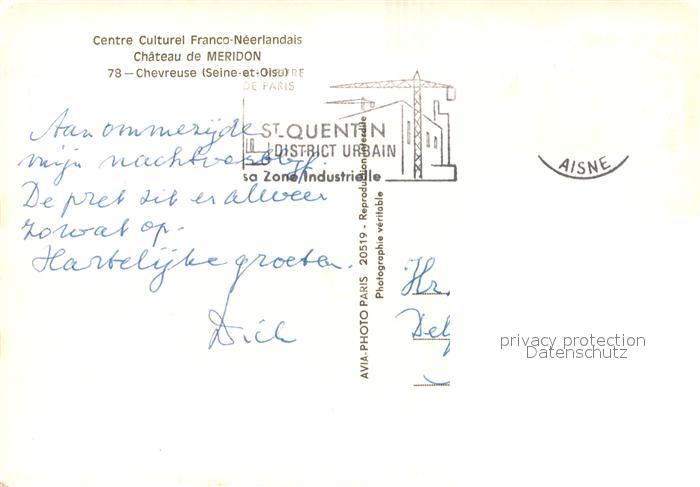 Centre Culturel Franco-Néerlandais
Château de MERIDON
78 — Chevreuse (Seine-et-Oise)
DE PARIS
ST QUENTIN
DISTRICT URBAIN
sa Zone Industrielle
AISNE
Aan ommezijde
mijn nachtverblijf.
De pret zit er alweer
zowat op.
Hartelijke groeten.
Dick
AVIA-PHOTO PARIS 20519 - Reproduction interdite
Photographie véritable
Hr.
privacy protection
Datenschutz